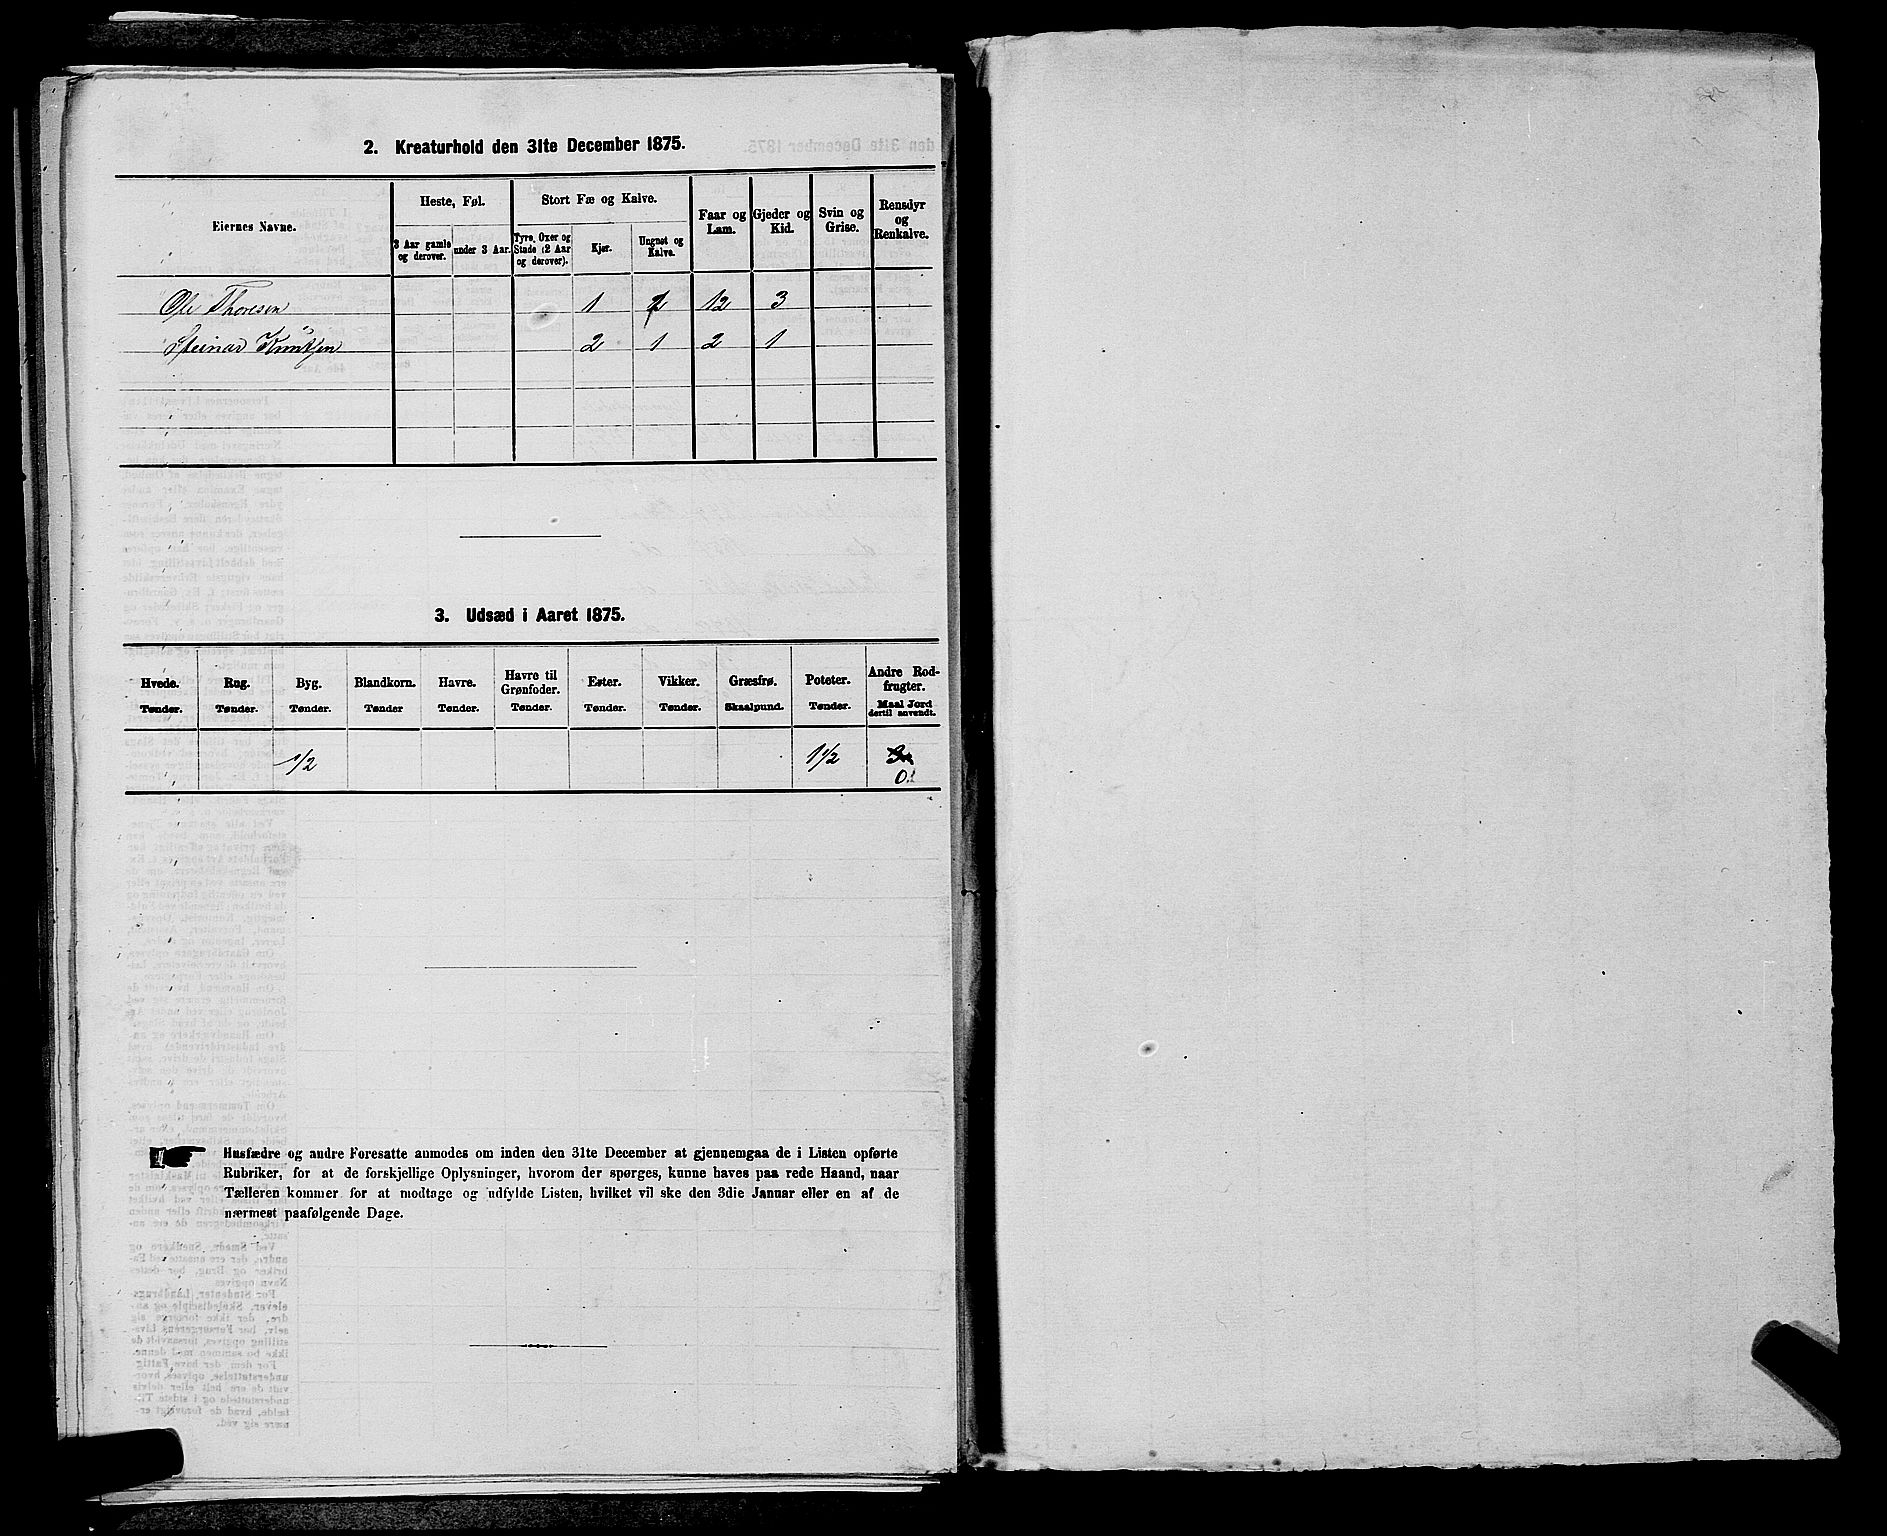 2. Kreaturhold den 31te December 1875.
Eiernes Navne.
Heste, Føl.
3 Aar gamle og derover.
under 3 Aar.
Stort Fæ og Kalve.
Tyre, Oxer og Stude (2 Aar og derover).
Kjør.
Ungnøt og Kalve.
Faar og Lam.
Gjeder og Kid.
Svin og Grise.
Rensdyr og Renkalve.
Ole Thoresen 1 12 3
Steinar Knutsen 2 1 2 1
3. Udsæd i Aaret 1875.
Hvede. Tønder.
Rug. Tønder.
Byg. Tønder.
Blandkorn. Tønder
Havre. Tønder.
Havre til Grønfoder. Tønder.
Erter. Tønder.
Vikker. Tønder.
Græsfrø. Skaalpund.
Poteter. Tønder.
Andre Rodfrugter. Maal Jord dertil anvendt.
1/2 1 1/2
Husfædre og andre Foresatte anmodes om inden den 31te December at gjennemgaa de i Listen opførte
Rubriker, for at de forskjellige Oplysninger, hvorom der spørges, kunne haves paa rede Haand, naar
Tælleren kommer for at modtage og udfylde Listen, hvilket vil ske den 3die Januar eller en af de
nærmest paafølgende Dage.